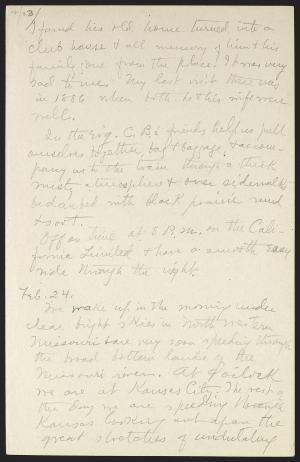 2/23/
I found his old home turned into a
club house & all memory of him & his
family gone from the place. It was very
sad to me. My last visit there was
in 1886 when both he & his wife were
well.
In the evg. C.B.'s friends help us pull
ourselves together, bag & baggage, & accom-
pany us to the train through a thick
misty atmosphere & over sidewalks
bedaubed with black prairie mud
& soot.
Off on time at 8 P.M. on the Cali-
fornia Limited & have a smooth easy
ride through the night.
Feb. 24.
We wake up in the morning under
clear bright skies in North Western
Missouri & are very soon speeding through
the broad bottom lands of the
Missouri river. At 9 o'clock
we are at Kansas City. The rest of
the day we are speeding through
Kansas looking out upon the
great stretches of undulating